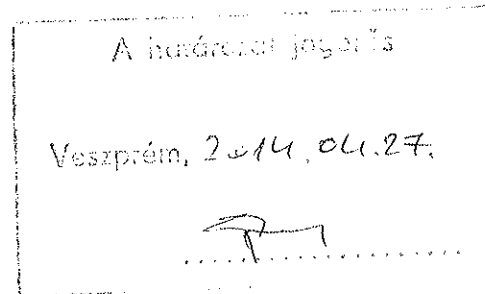 A határozat jogerős
Veszprém, 2014.04.27.